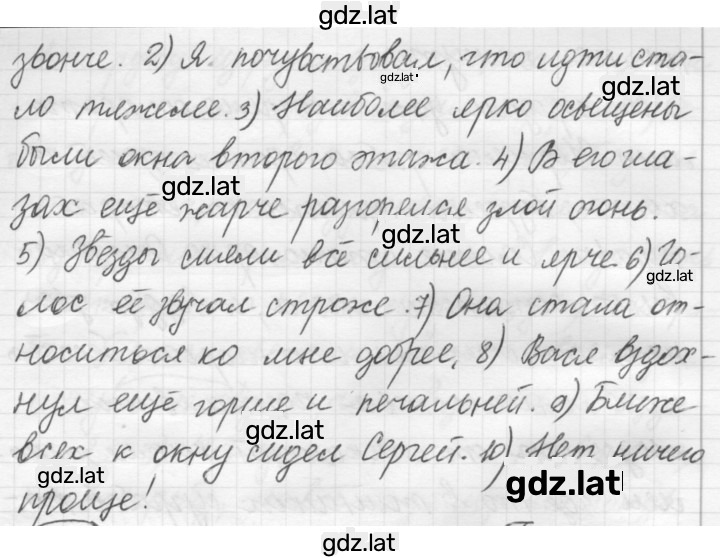 gdz.lat
звонче. 2) Я почувствовал, что идти ста-
gdz.lat
gdz.lat
ло тяжелее. 3) Наиболее ярко освещены
были окна второго этажа. 4) В его гла-
gdz.lat
зах ещё жарче разгорелся злой огонь.
gdz.lat
5) Звёзды сияли всё сильнее и ярче. 6) Го-
gdz.lat
лос её звучал строже. 7) Она стала от-
носиться ко мне добрее, 8) Вася вздох-
нул ещё горше и печальней. 9) Ближе
gdz.lat
всех к окну сидел Сергей. 10) Нет ничего
gdz.lat
gdz.lat
проще!
gdz.lat